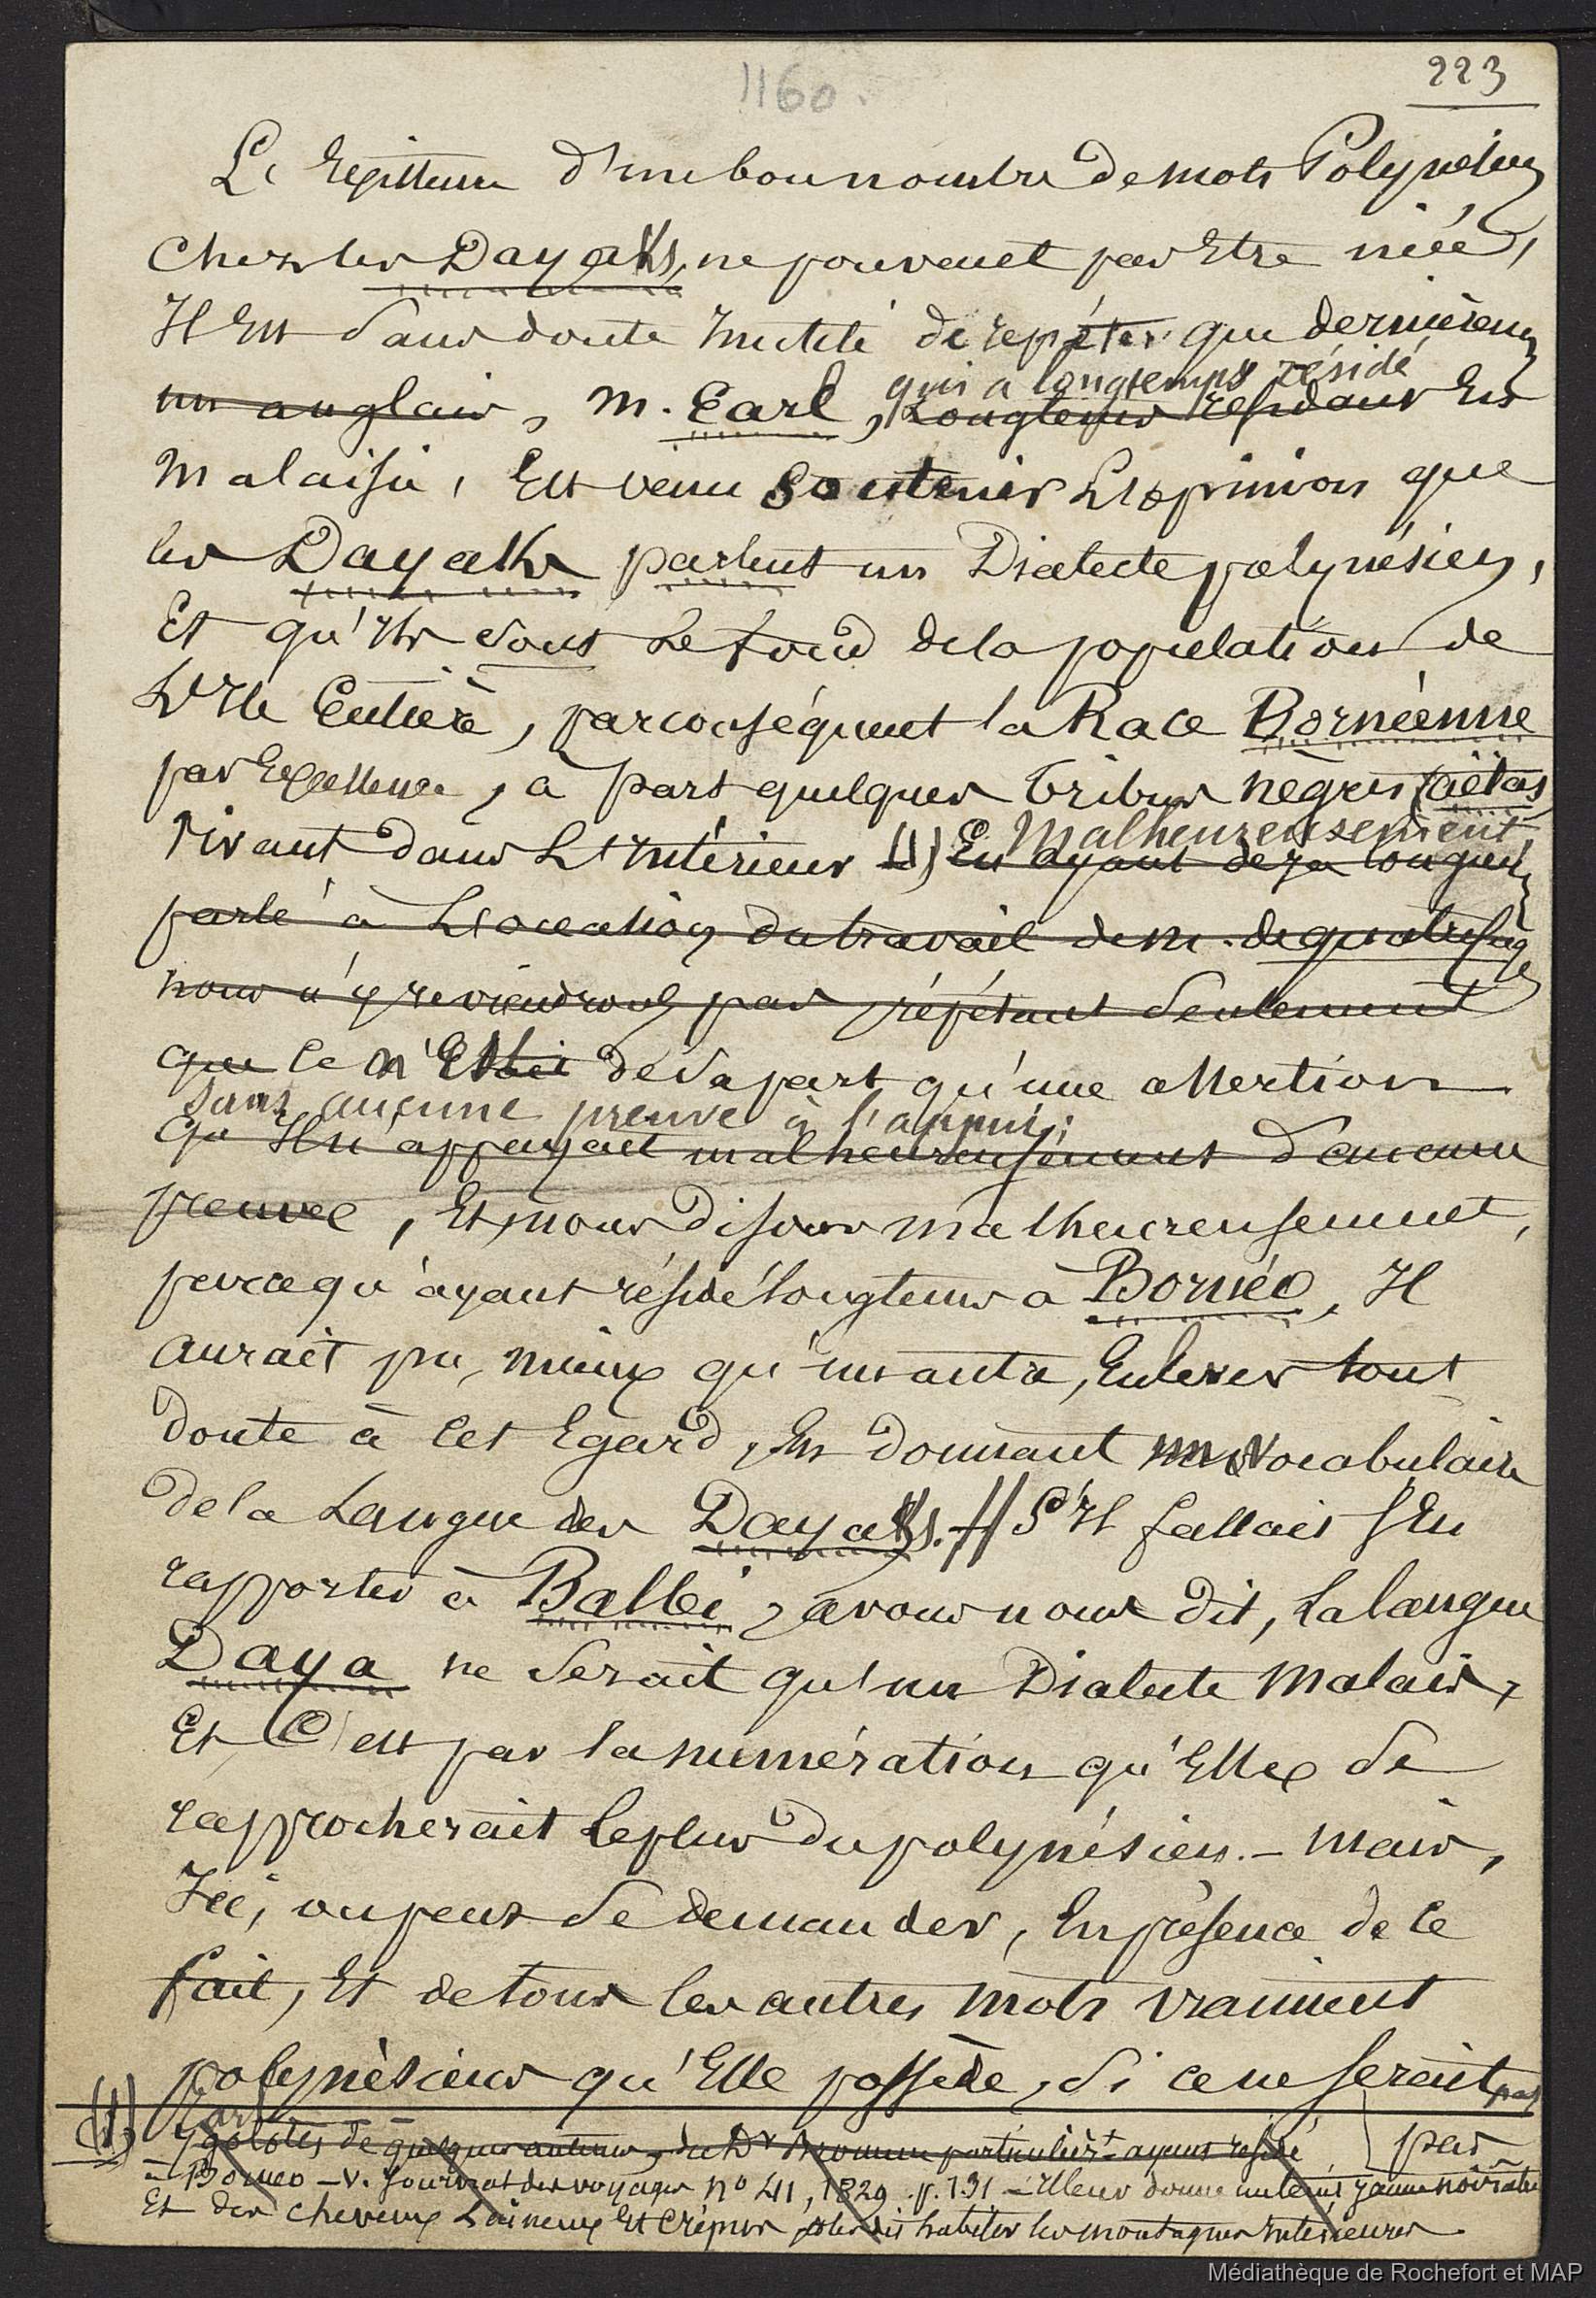 1160.
223
L'Existence d'un bon nombre de mots Polynésiens
Chez les Dayaks, ne pouvant pas Etre niée,
Il Est sans doute Inutile de repéter que dernièrement
un anglais, M. Earl, longtems résidant En
qui a longtemps résidé
Malaisie, Est venu soutenir L'opinion que
les Dayaks parlent un Dialecte polynésien,
Et qu'Ils sont Le fond de la population de
L'Ile Entière, par conséquent la Race Bornéenne
par Excellence, à part quelques tribus nègres (aëtas)
vivant dans L'Intérieur (1) En ayant déja longuement
Malheureusement
parlé à L'occasion du travail de M. de quatrefages
nous n'y reviendrons pas répétant seulement
que ce n'Est de sa part qu'une assertion
sans aucune preuve à l'appui;
qu'Il n'appuyait malheureusement d'aucune
preuve, Et nous disons malheureusement,
parcequ'ayant résidé longtems à Bornéo, Il
aurait pu, mieux qu'un autre, Enlever tout
doute à cet Egard, En donnant un vocabulaire
de la Langue des Dayaks. // S'Il fallait s'En
rapporter à Balbi, avons nous dit, la langue
Daya ne serait qu'un Dialecte Malais,
Et C'est par la numération qu'Elle se
rapprocherait le plus du polynésien. – Mais,
Ici, on peut se demander, En présence de ce
fait, Et de tous les autres mots vraiment
polynésiens qu'Elle possède, si ce ne serait pas
pas
(1) Earl
Ygolotes de quelques auteurs, du Dr particulièrt ayant résidé
à Bornéo – V. Journal des voyages no 411, 1829. p. 131 – Il leur donne un teint jaune noirâtre
Et des cheveux Laineux Et Crépus, Il les dit habiter les montagnes Intérieures
Médiathèque de Rochefort et MAP